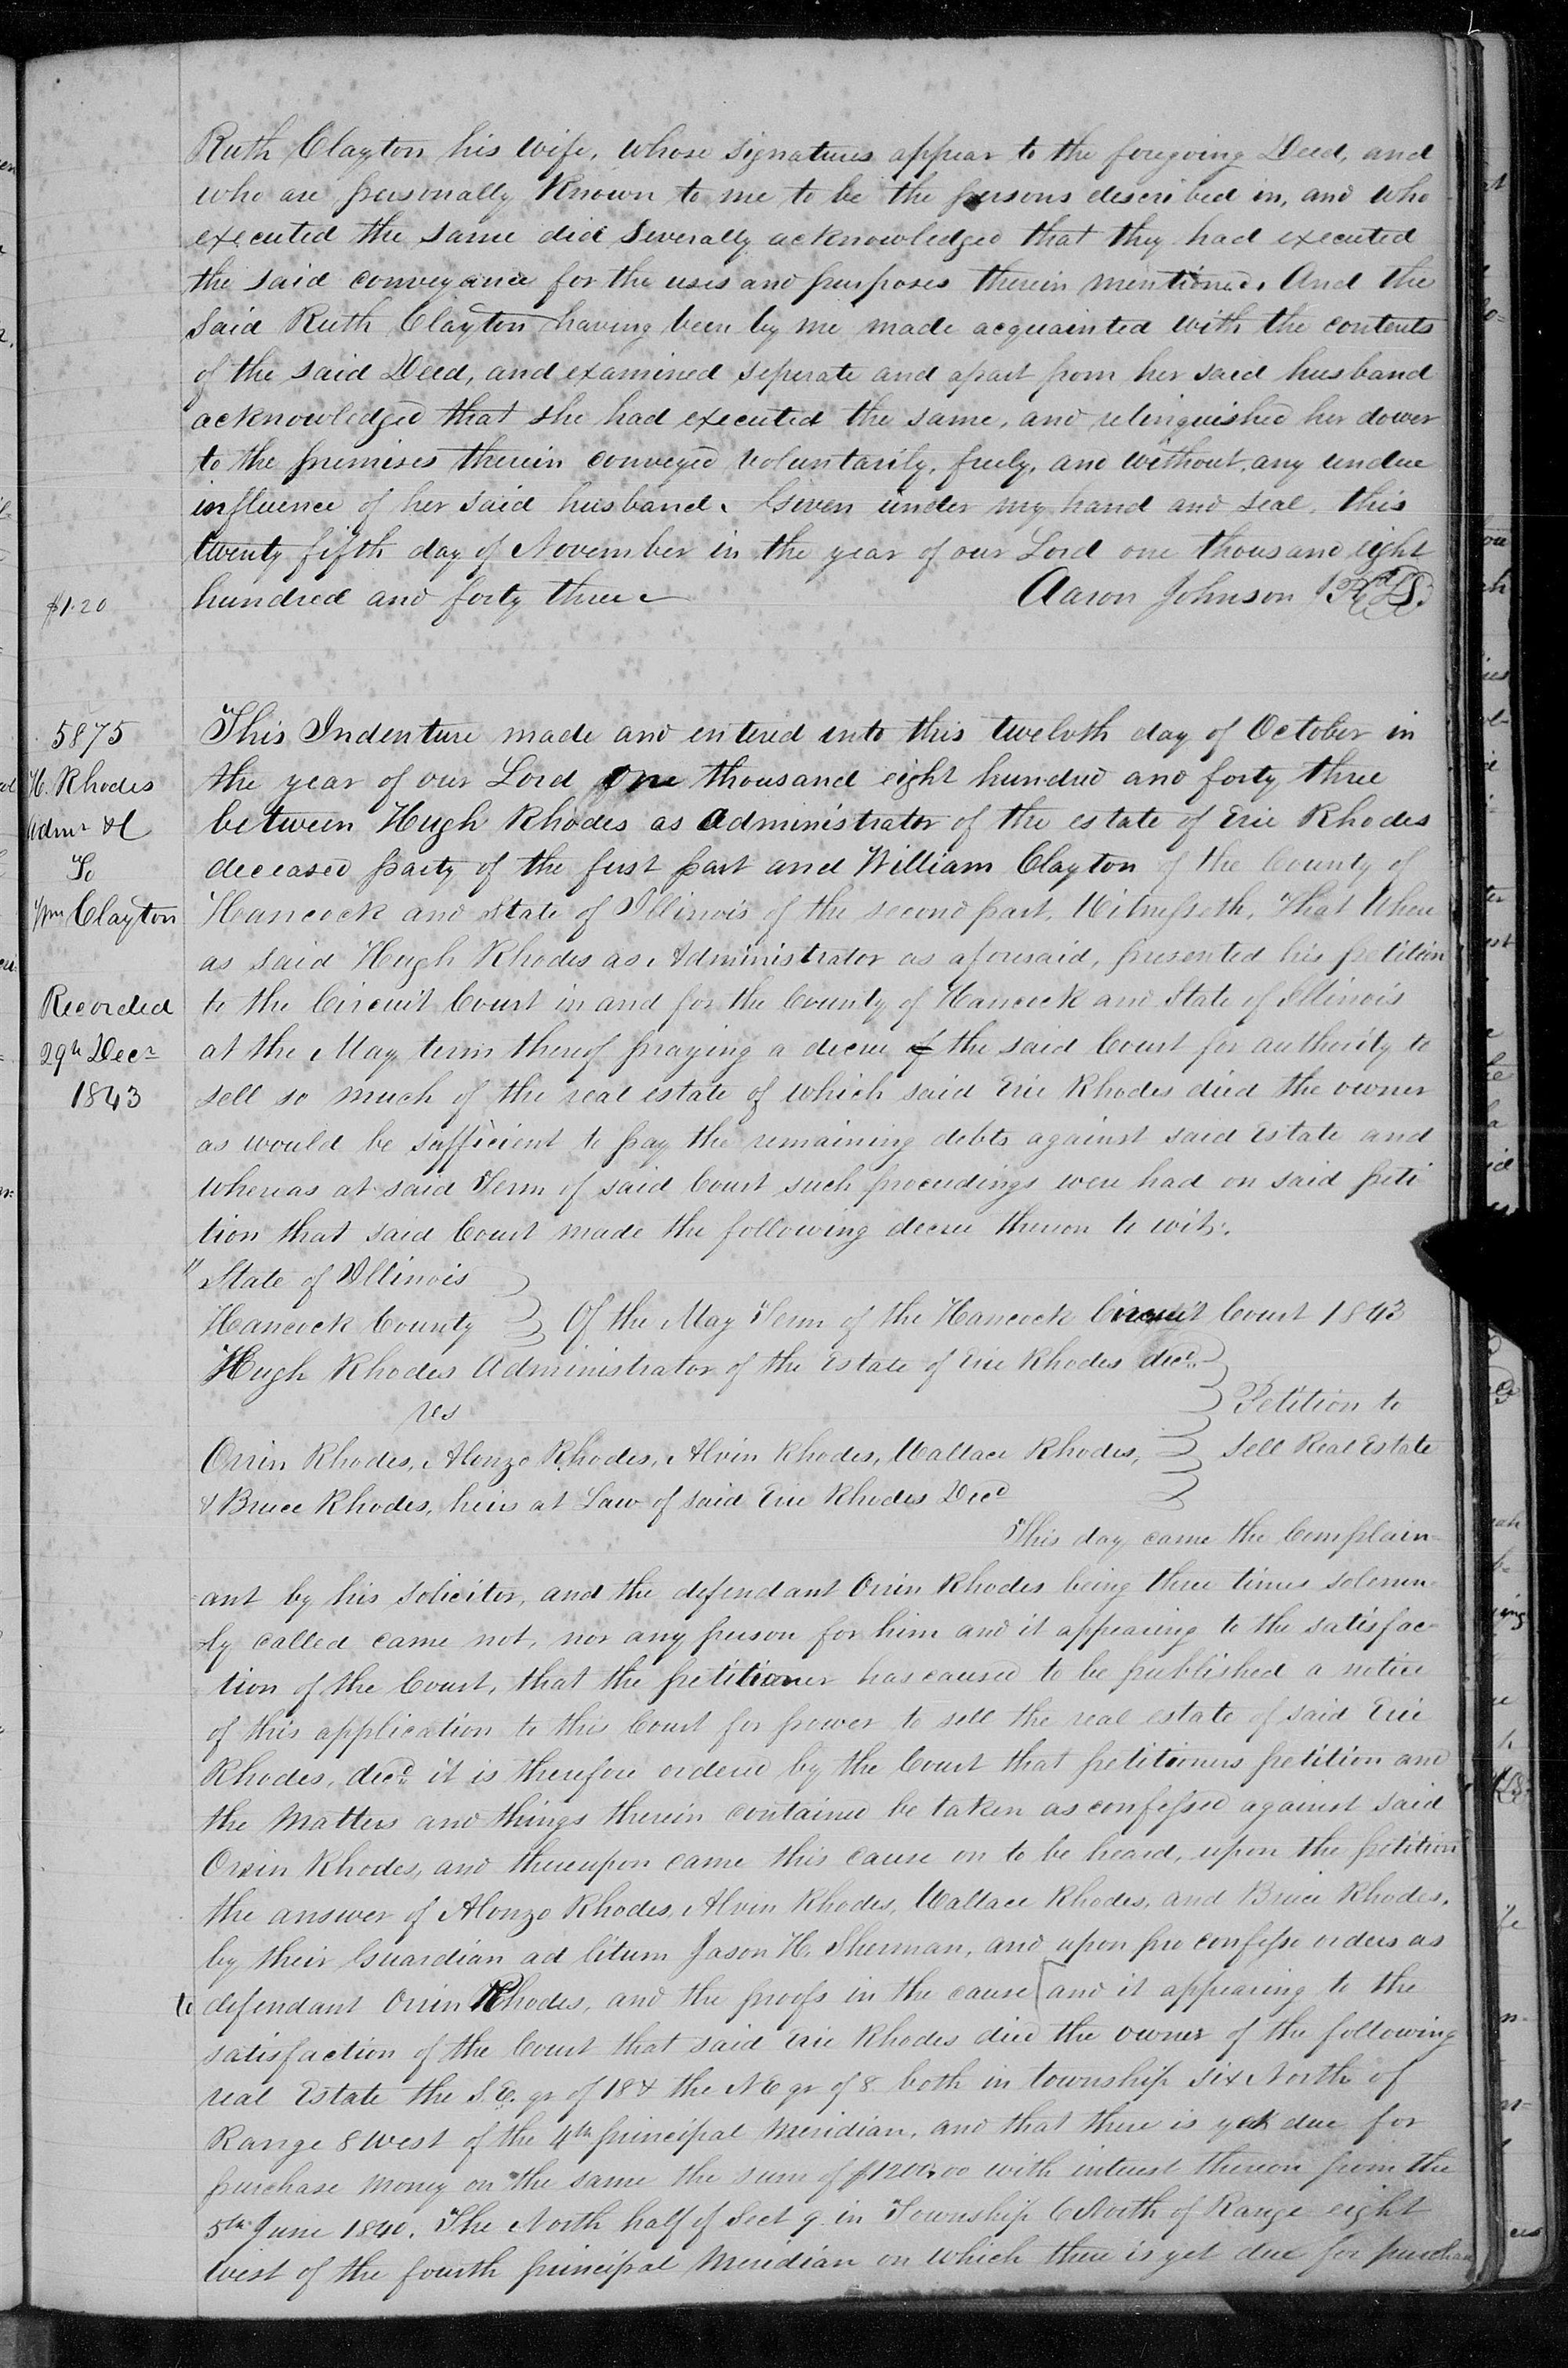 Ruth Clayton his wife, whose signatures appear to the foregoing Deed, and
who are personally known to me to be the persons described in, and who
executed the same did severally acknowledged that they had executed
the said conveyance for the uses and purposes therein mentioned. And the
said Ruth Clayton having been by me made acquainted with the contents
of the said Deed, and examined seperate and apart from her said husband
acknowledged that she had executed the same, and relinquished her dower
to the premises therein conveyed voluntarily, freely, and without any undue
influence of her said husband. Given under my hand and seal, this
twenty fifth day of November in the year of our Lord one thousand eight
$1.20
hundred and forty three
Aaron Johnson
5875
H. Rhodes
Admr &c
To
Wm Clayton
Recorded
29th Decr
1843
This Indenture made and entered into this twelvth day of October in
the year of our Lord One thousand eight hundred and forty three
between Hugh Rhodes as Administrator of the estate of Erie Rhodes
deceased party of the first part and William Clayton of the County of
Hancock and State of Illinois of the second part, Witnesseth, That Where
as said Hugh Rhodes as Administrator as aforesaid, presented his petition
to the Circuit Court in and for the County of Hancock and State of Illinois
at the May term thereof praying a decree of the said Court for authority to
sell so much of the real estate of which said Erie Rhodes died the owner
as would be sufficient to pay the remaining debts against said Estate and
whereas at said Term of said Court such proceedings were had on said peti
tion that said Court made the following decree thereon to wit:
"State of Illinois
Hancock County } Of the May Term of the Hancock Circuit Court 1843
Hugh Rhodes Administrator of the Estate of Erie Rhodes decd.
vs
Petition to
Orrin Rhodes, Alonzo Rhodes, Alvin Rhodes, Wallace Rhodes, } Sell Real Estate
& Bruce Rhodes, heirs at Law of said Erie Rhodes Decd
This day came the Complain-
ant by his solicitor, and the defendant Orrin Rhodes being three times solemn-
ly called came not, nor any person for him and it appearing to the satisfac-
tion of the Court, that the petitioner has caused to be published a notice
of this application to this Court for power to sell the real estate of said Erie
Rhodes, decd. it is therefore ordered by the Court that petitioners petition and
the Matters and things therein contained be taken as confessed against said
Orrin Rhodes, and thereupon came this cause on to be heard, upon the petition
the answer of Alonzo Rhodes, Alvin Rhodes, Wallace Rhodes, and Bruce Rhodes,
by their Guardian ad litum Jason H. Sherman, and upon pro confesso orders as
to defendant Orrin Rhodes, and the proofs in the cause [and it appearing to the
satisfaction of the Court that said Erie Rhodes died the owner of the following
real Estate the S.E. qr of 18 & the NE qr of 8 both in township Six North of
Range 8 West of the 4th principal Meridian, and that there is yet due for
purchase money on the same the sum of $1200.00 with interest thereon from the
5th June 1840. The North half of Sect 9 in Township 6 North of Range eight
West of the fourth principal Meridian on which there is yet due for purchase